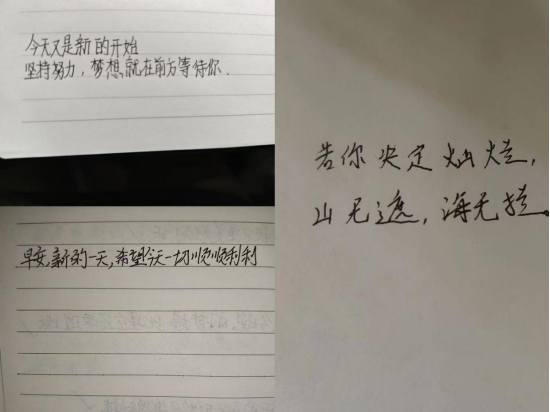 今天又是新的开始
坚持努力，梦想就在前方等待你.
早安,新的一天,希望今天一切顺顺利利
若你决定灿烂,
山无遮,海无拦。